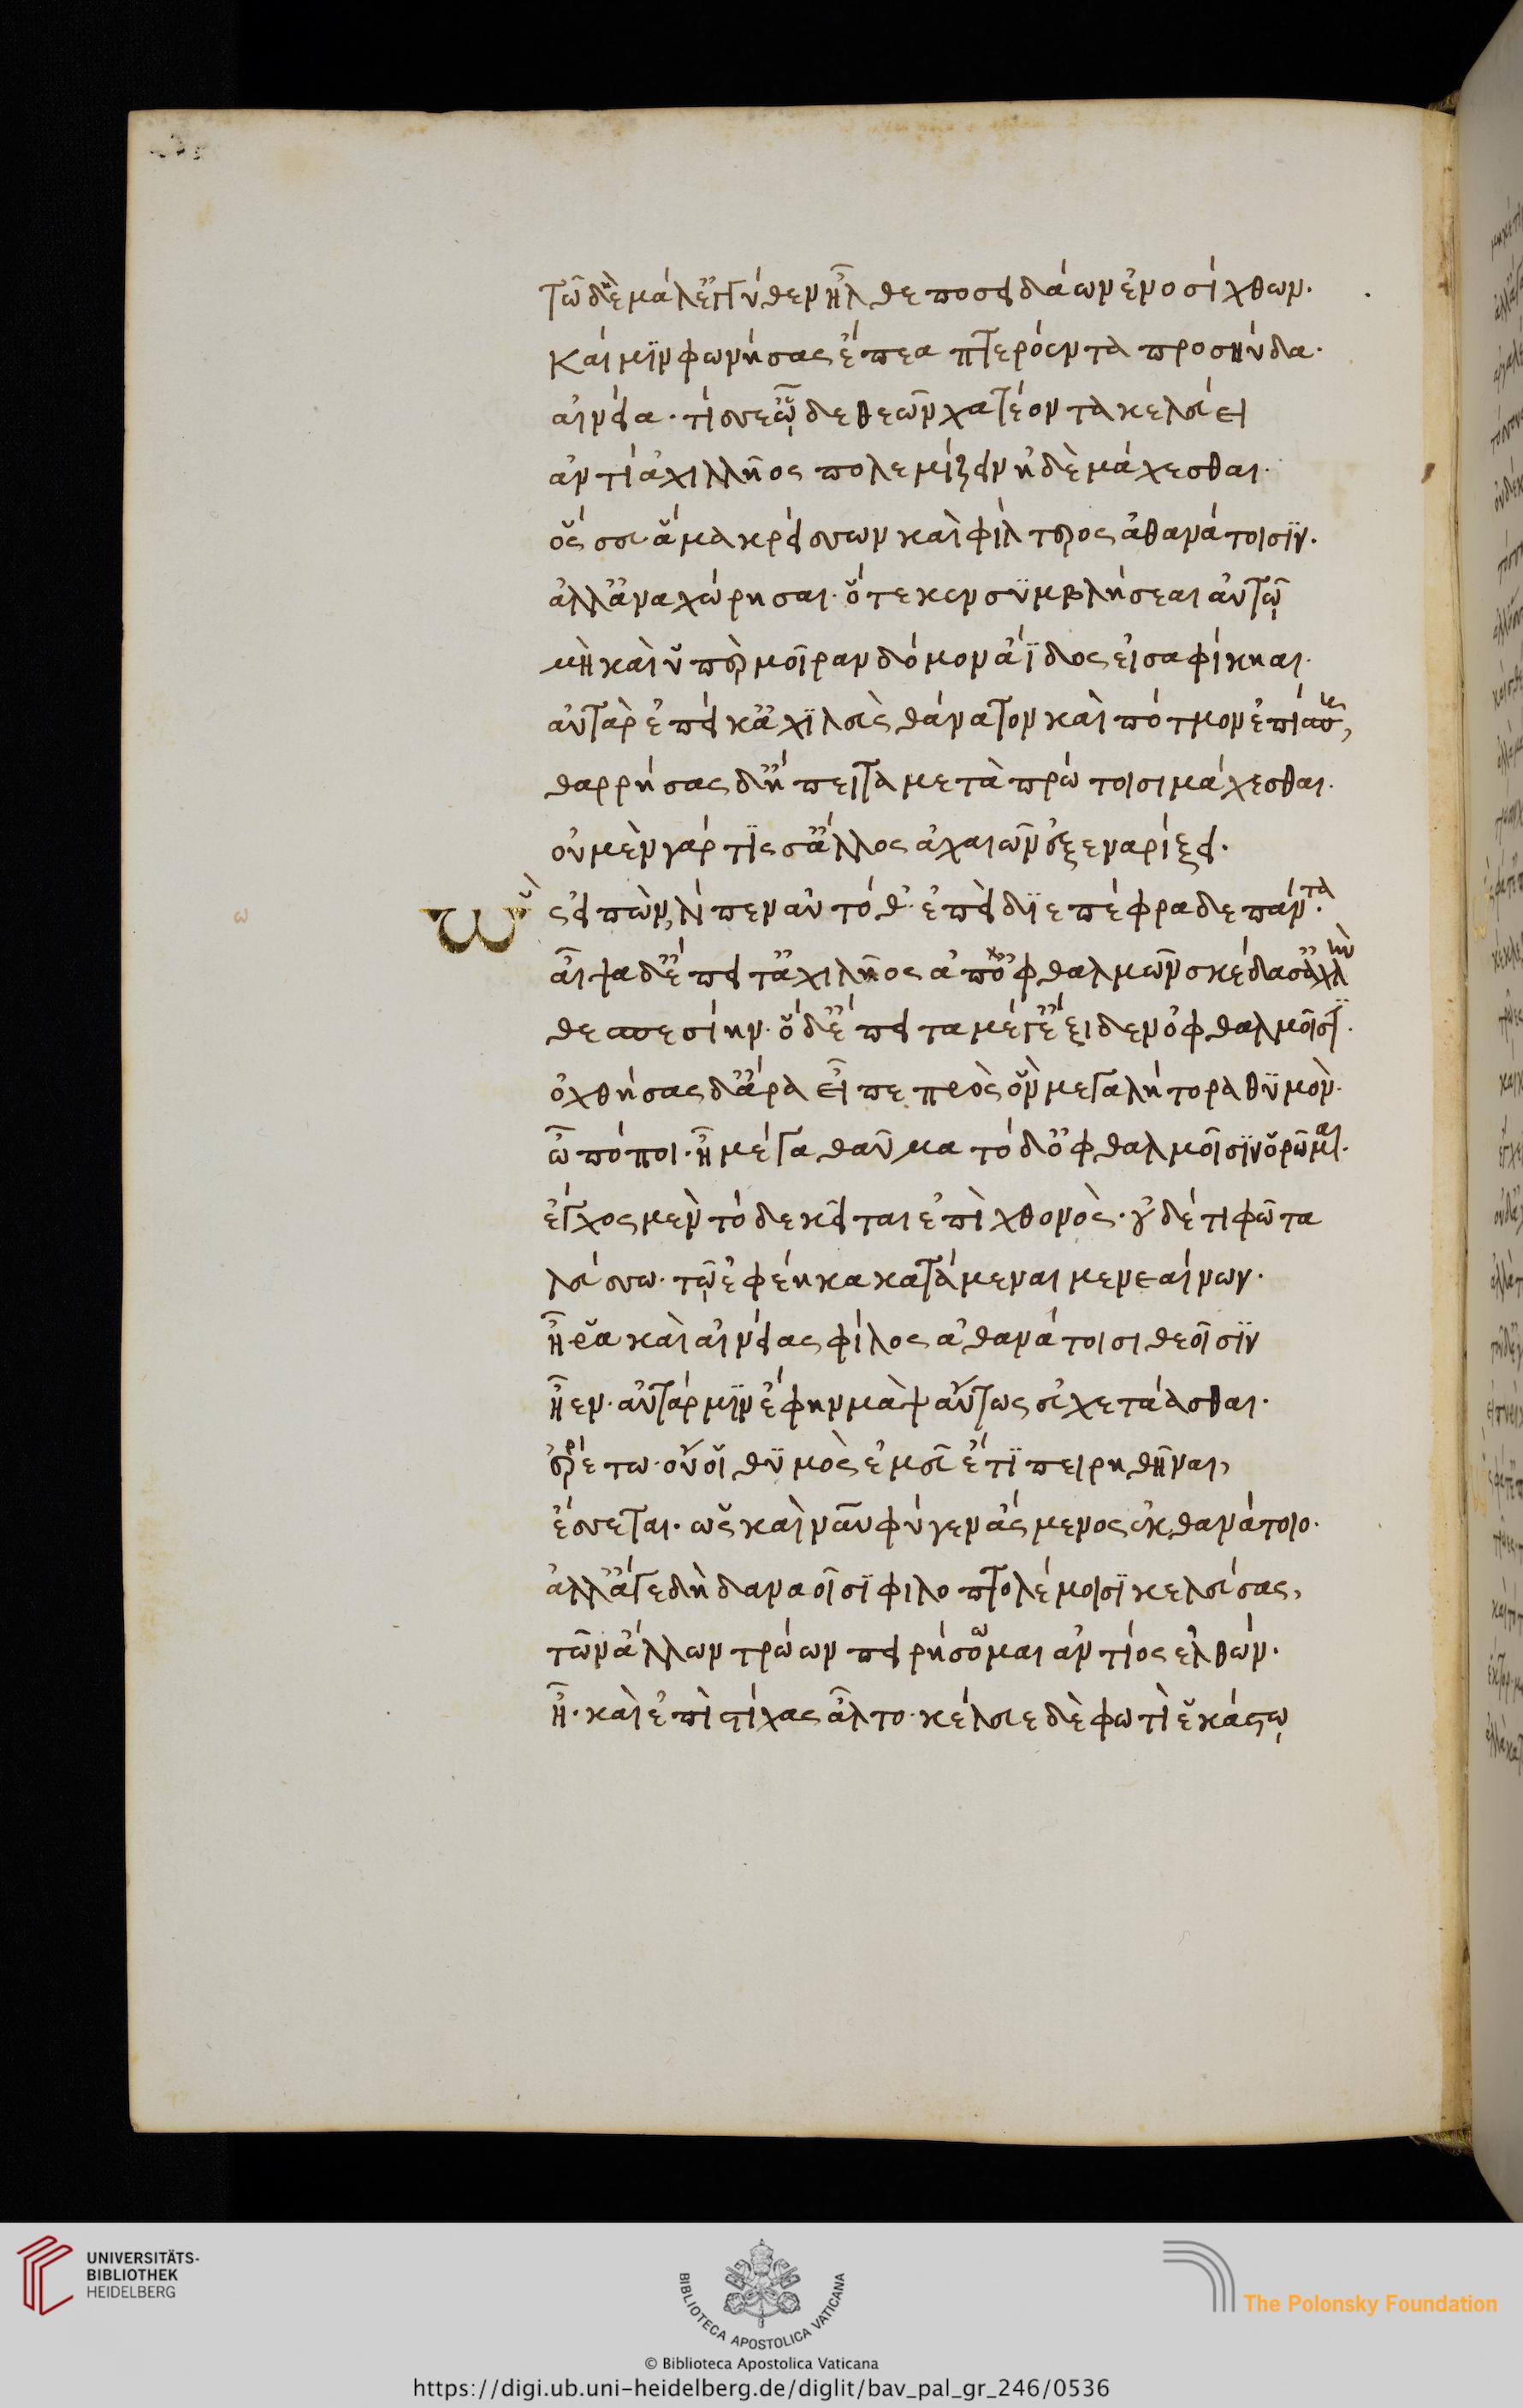 τῶ δὲ μάλ' ἐγγύθεν ἦλθε ποσειδάων ἐνοσίχθων·
καί μϊν φωνήσας ἔπεα πτερόεντα προσηύδα·
αἰνεία· τίς σε ᾧδε θεῶν χατέοντα κελεύει
ἀντί' ἀχιλλῆος πολεμίζειν ἠδὲ μάχεσθαι·
ὅς σευ ἅμα κρείσσων καὶ φίλτερος ἀθανάτοισϊν·
ἀλλ' ἀναχώρησαι· ὅτε κεν συμβλήσεαι αὐτῷ
μὴ καὶ ὑπὲρ μοῖραν δόμον ἄϊδος εἰσαφίκηαι·
αὐτὰρ ἐπεί κ' ἀχϊλεὺς θάνατον καὶ πότμον ἐπίσπῃ,
θαρρήσας δἤπειτα μετὰ πρώτοισι μάχεσθαι·
οὐ μὲν γάρ τϊς σ' ἄλλος ἀχαιῶν ἐξεναρίξει·
ὣς εἰπὼν, λίπεν αὐτόθ'· ἐπεὶ δϊεπέφραδε πάντα·
αἶψα δ' ἔπειτ' ἀχιλῆος ἀπ' ὀφθαλμῶν σκέδασ' ἀχλὺν
θεσπεσίην· ὅ δ' ἔπειτα μέγ' ἔξιδεν ὀφθαλμοῖσϊ·
ὀχθήσας δ' ἄρα εἶπε πρὸς ὃν μεγαλήτορα θϋμὸν·
ὦ πόποι· ἦ μέγα θαῦμα τόδ' ὀφθαλμοῖσϊν ὁρῶμαι·
ἔγχος μὲν τόδε κεῖται ἐπὶ χθονὸς· οὐδέ τι φῶτα
λεύσσω· τῷ ἐφέηκα κατάμεναι μενεαίνων·
ἦ ῥα καὶ αἰνείας φίλος ἀθανάτοισι θεοῖσϊν
ἦεν· αὐτάρ μϊν ἔφην μὰψ αὔτως εὐχετάασθαι·
ἐρρέτω· οὔ οἱ θϋμὸς ἐμεῦ ἔτϊ πειρηθῆναι,
ἔσσεται· ὡς καὶ νῦν φύγεν ἄσμενος ἐκ θανάτοιο·
ἀλλ' ἄγε δὴ δαναοῖσϊ φιλοπτολέμοισϊ κελεύσας,
τῶν ἄλλων τρώων πειρήσομαι ἀντίος ἐλθών·
ἦ· καὶ ἐπὶ στίχας ἆλτο· κέλευε δὲ φωτὶ ἑκάστῳ
ω
UNIVERSITÄTS-
BIBLIOTHEK
HEIDELBERG
BIBLIOTECA APOSTOLICA VATICANA
The Polonsky Foundation
© Biblioteca Apostolica Vaticana
https://digi.ub.uni-heidelberg.de/diglit/bav_pal_gr_246/0536